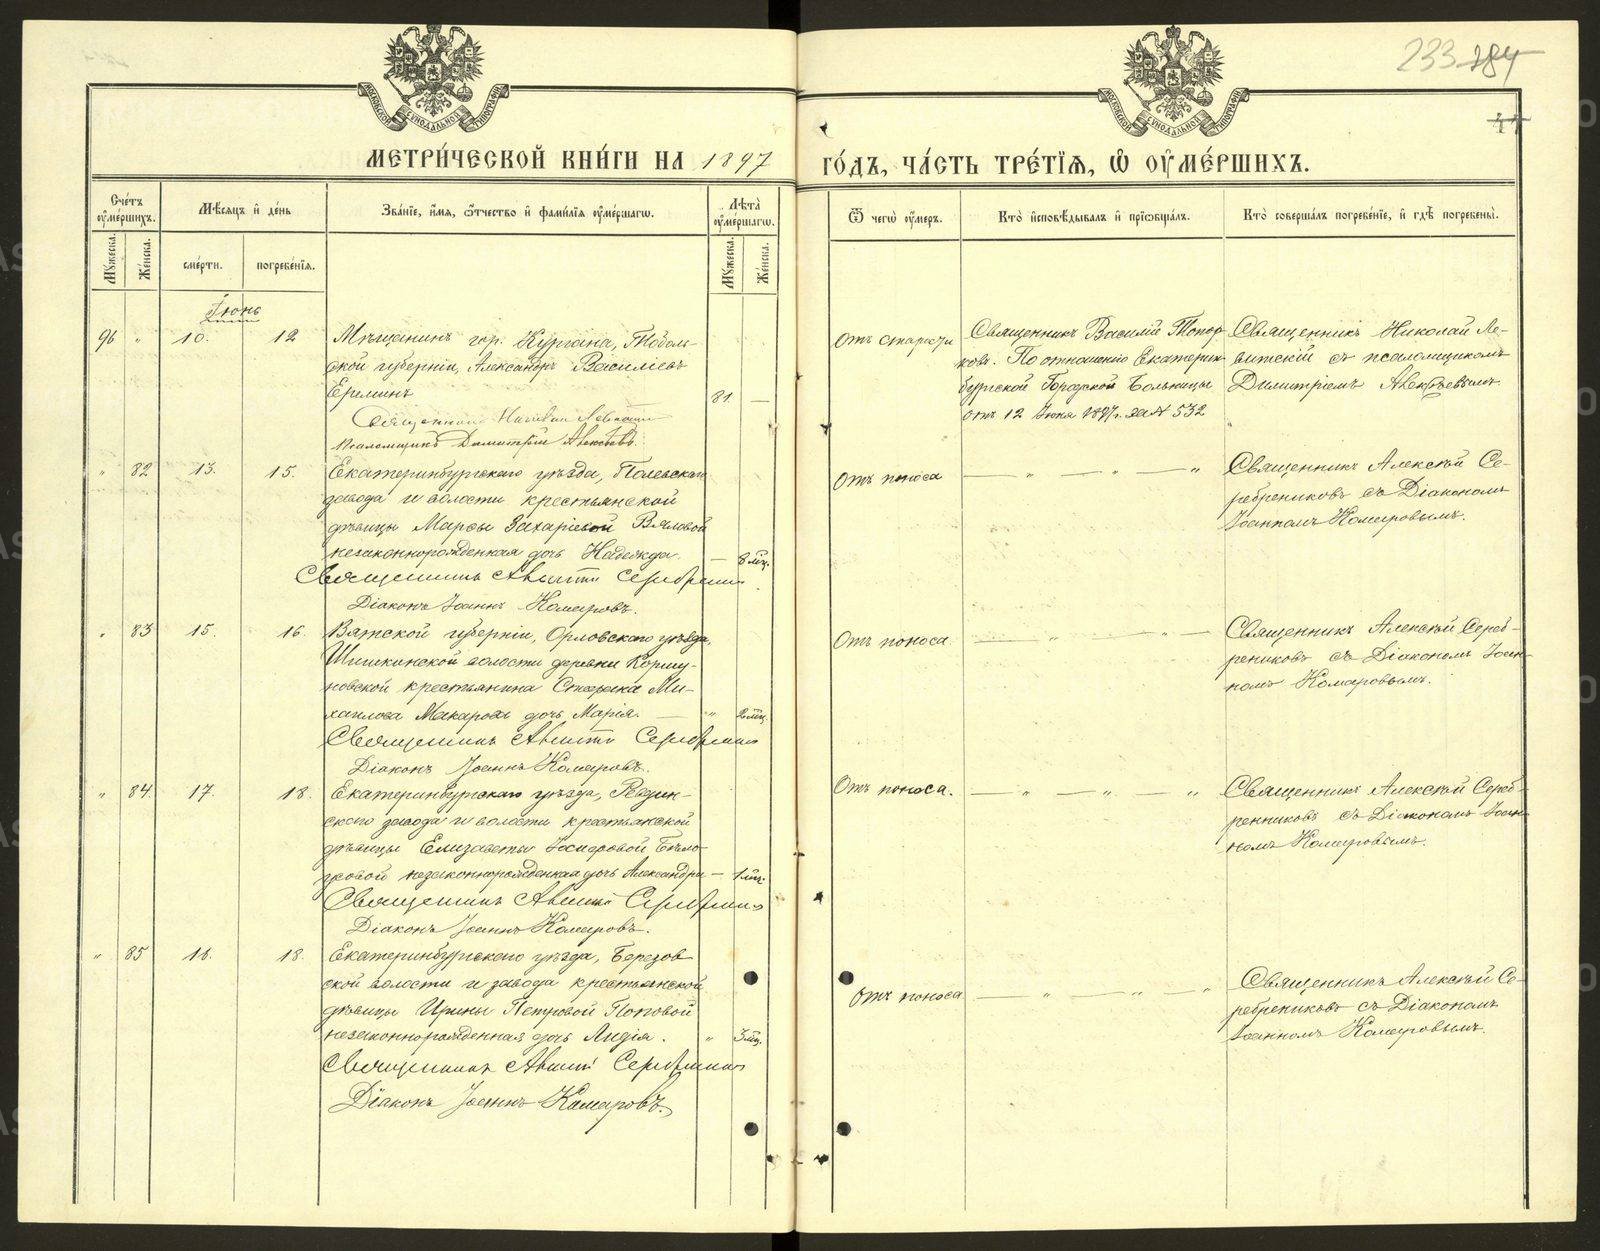 233 184
44
МЕТРИ́ЧЕСКОЙ КНИ́ГИ НА 1897
ГО́ДЪ, ЧА́СТЬ ТРЕ́ТЇѦ, Ѿ ОУ҆МЕ́РШИХЪ.
Сче́тъ оу҆ме́ршихъ.
Мѣ́сяцъ и҆ де́нь
Зва́нїе, и҆́мя, ѻ҆́тчество и҆ фами́лїя оу҆ме́ршагѡ.
Лѣ́та оу҆ме́ршагѡ.
Ѿ чегѡ̀ оу҆́меръ.
Кто̀ и҆сповѣ́дывалъ и҆ прїѡбща́лъ.
Кто̀ соверша́лъ погребе́нїе, и҆ гдѣ̀ погребены̀.
Му́жеска.
Же́нска.
сме́рти.
погребе́нїя.
Му́жеска.
Же́нска.
Іюнь
96 " 10. 12
Мѣщанинъ гор. Кургана, Тоболь-
ской губерніи, Александръ Василіевъ
Ереминъ 81 —
Священникъ Николай Левитскій
Псаломщикъ Димитрій Авксѣевъ
Отъ старости
Священникъ Василій Топор-
ковъ. По отношенію Екатерин-
бургской Городской Больницы
отъ 12 Іюня 1897 г. за № 532
Священникъ Николай Ле-
витскій съ псаломщикомъ
Димитріемъ Авксѣевымъ
" 82 13. 15.
Екатеринбургскаго уѣзда, Полевскаго
завода и волости крестьянской
дѣвицы Марѳы Захаріевой Вяловой
незаконнорожденная дочь Надежда. — 8 мѣц.
Священникъ Алексѣй Серебрениковъ
Діаконъ Іоаннъ Комаровъ.
Отъ поноса — " — " — "
Священникъ Алексѣй Се-
ребрениковъ съ Діакономъ
Іоанномъ Комаровымъ.
" 83 15. 16.
Вятской губерніи, Орловскаго уѣзда,
Шишкинской волости деревни Коршу-
новской крестьянина Ми-
хаилова Макарова дочь Марія. — " 2 мѣц.
Священникъ Алексѣй Серебрениковъ
Діаконъ Іоаннъ Комаровъ.
Отъ поноса — " — " — "
Священникъ Алексѣй Сереб-
рениковъ съ Діакономъ Іоан-
номъ Комаровымъ.
" 84. 17. 18.
Екатеринбургскаго уѣзда, Ревдин-
скаго завода и волости крестьянской
дѣвицы Елизаветы Іосифовой Бѣло-
незаконнорожденная дочь Александра — 1 мѣц.
Священникъ Алексѣй Серебрениковъ
Діаконъ Іоаннъ Комаровъ.
Отъ поноса. — " — " — "
Священникъ Алексѣй Сереб-
ренниковъ съ Діакономъ Іоан-
номъ Комаровымъ.
" 85 16. 18.
Екатеринбургскаго уѣзда, Березов-
ской волости и завода крестьянской
дѣвицы Ирины Петровой Поповой
незаконнорожденная дочь Лидія. " 3 мѣц.
Священникъ Алексѣй Серебрениковъ
Діаконъ Іоаннъ Комаровъ.
Отъ поноса — " — " — "
Священникъ Алексѣй Се-
ребрениковъ съ Діакономъ
Іоанномъ Комаровымъ.